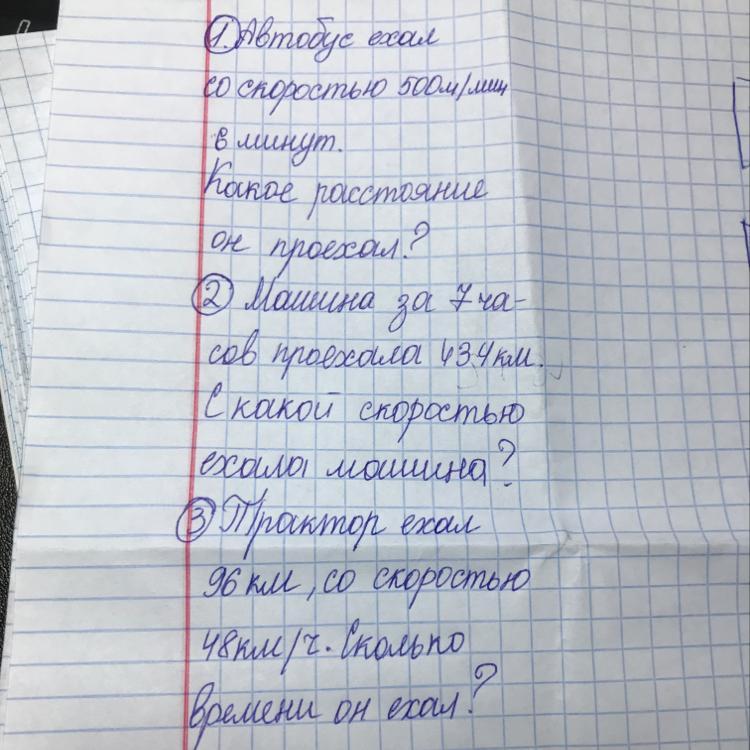 1. Автобус ехал
со скоростью 500м/мин
6 минут.
Какое расстояние
он проехал?
2 Машина за 7 ча-
сов проехала 434км.
С какой скоростью
ехала машина?
3 Трактор ехал
96км, со скоростью
48км/ч. Сколько
времени он ехал?